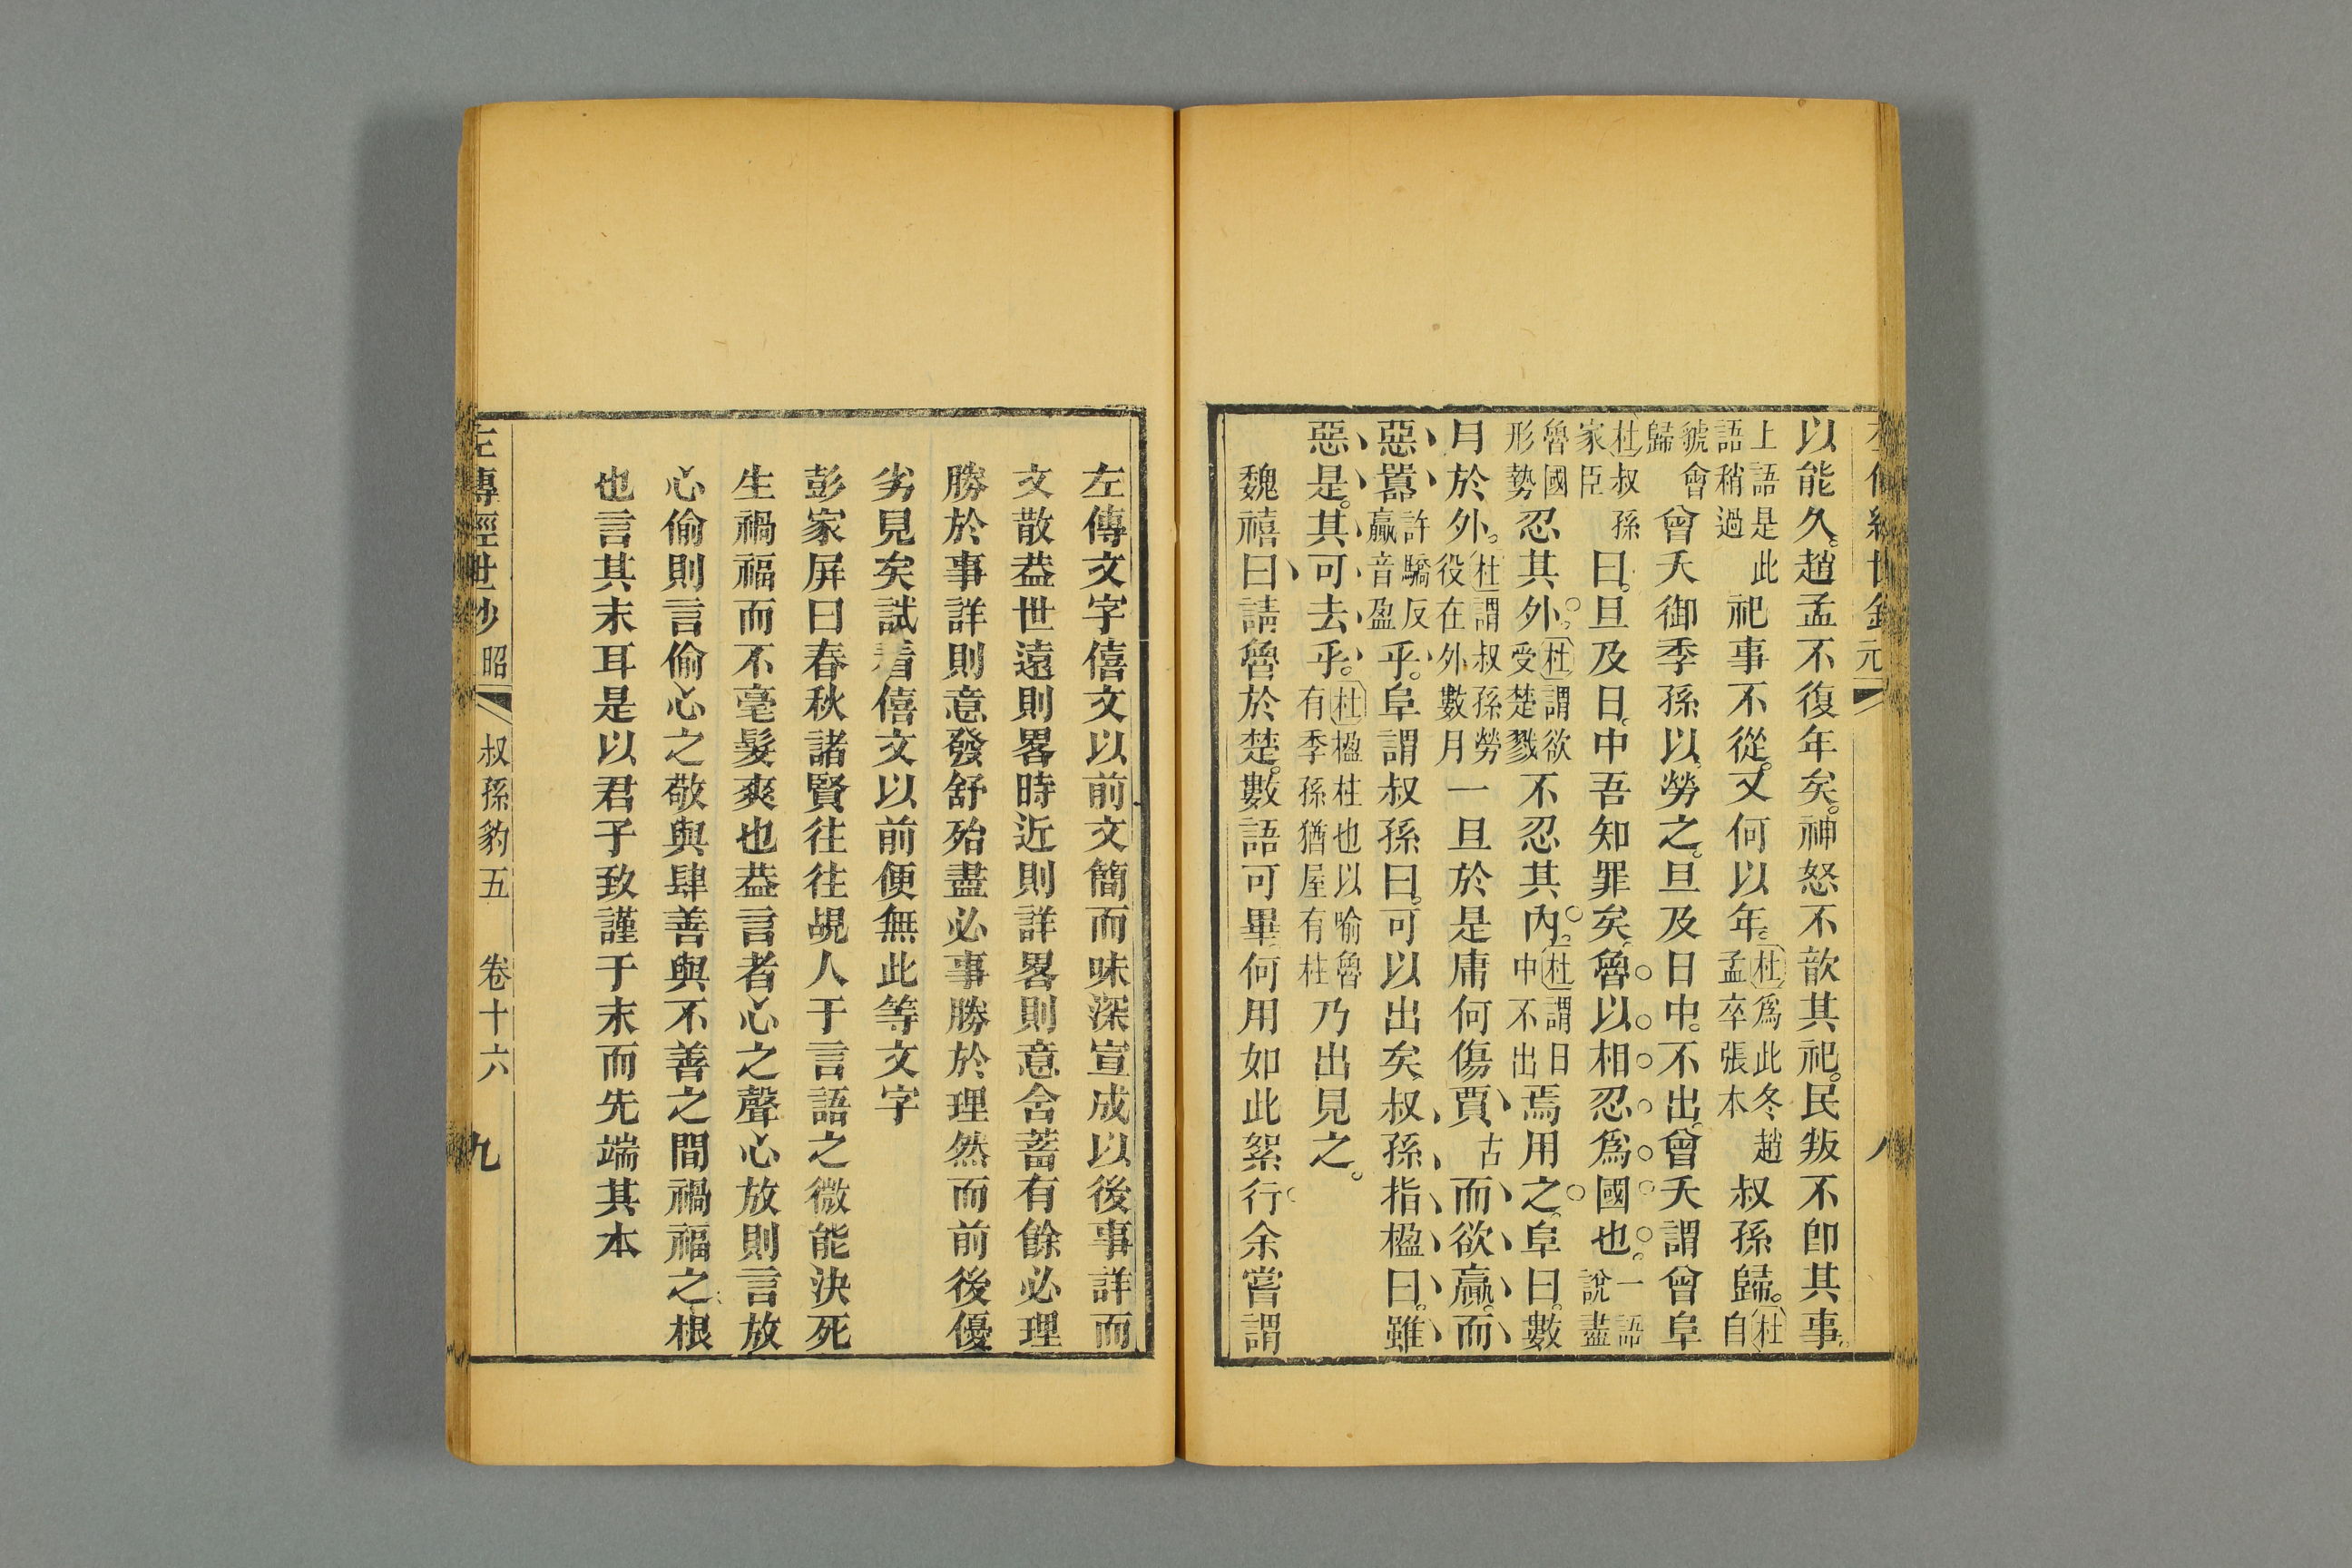 以能久趙孟不復年矣神怒不歆其祀民叛不卽其事
上語是此語稍過祀事不從又何以年杜爲此冬趙孟卒張本叔孫歸杜自
虢會歸曾夭御季孫以勞之旦及日中不出曾夭謂曾阜
杜叔孫家臣曰旦及日中吾知罪矣魯以相忍爲國也一語說盡
魯國形勢忍其外杜謂欲受楚戮不忍其內杜謂日中不出焉用之阜曰數
月於外杜謂叔孫勞役在外數月一旦於是庸何傷賈古而欲贏而
惡囂許驕反贏音盈乎阜謂叔孫曰可以出矣叔孫指楹曰雖
惡是其可去乎杜楹柱也以喻魯有季孫猶屋有柱乃出見之
魏禧曰請魯於楚數語可畢何用如此絮行余嘗謂
左傳文字僖文以前文簡而味深宣成以後事詳而
文散葢世遠則畧時近則詳畧則意含蓄有餘必理
勝於事詳則意發舒殆盡必事勝於理然而前後優
劣見矣試看僖文以前便無此等文字
彭家屏曰春秋諸賢往往覘人于言語之微能決死
生禍福而不毫髮爽也葢言者心之聲心放則言放
心偷則言偷心之敬與肆善與不善之間禍福之根
也言其末耳是以君子致謹于末而先端其本
左傳經世鈔 昭 叔孫豹五 卷十六 九